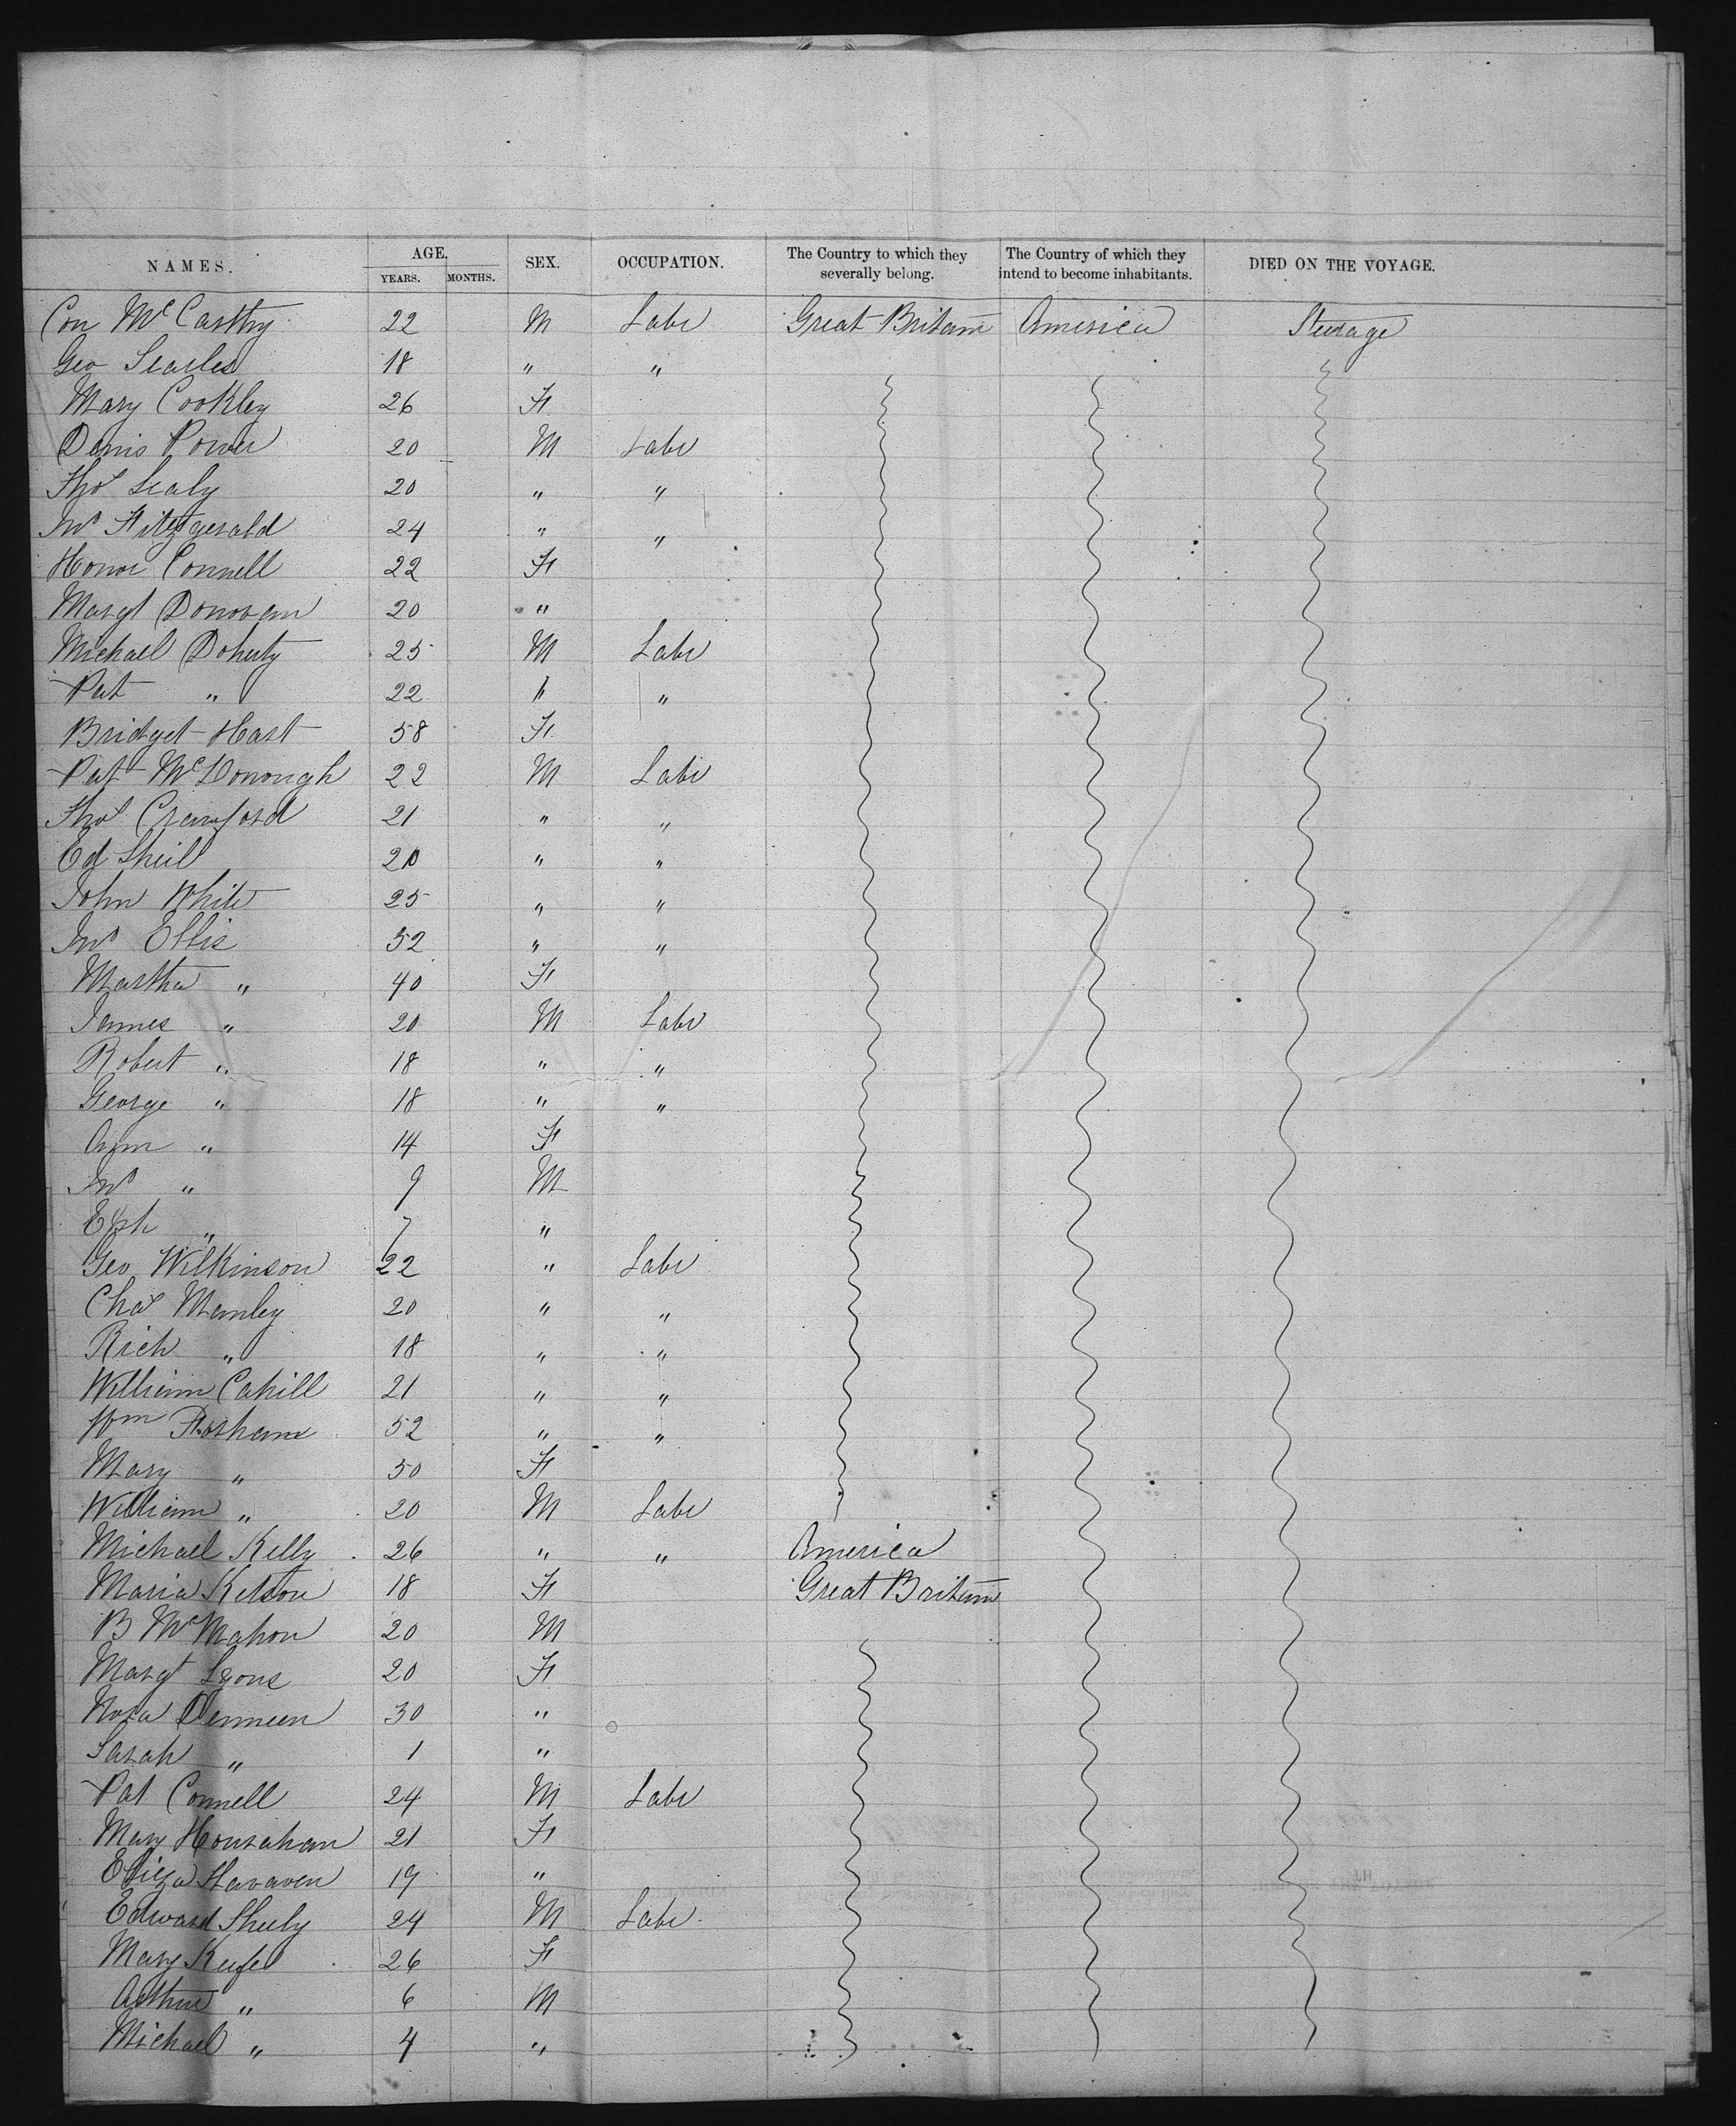 NAMES. AGE. YEARS. MONTHS. SEX. OCCUPATION. The Country to which they severally belong. The Country of which they intend to become inhabitants. DIED ON THE VOYAGE.
Con McCarthy 22 M Labr Great Britain America Steerage
Geo Searles 18 " "
Mary Cookley 26 F
Denis Power 20 M Labr
Thos Sealy 20 " "
Jno Fitzgerald 24 " "
Honor Connell 22 F
Margt Donovan 20 "
Michael Doherty 25 M Labr
Pat " 22 " "
Bridget Hart 58 F
Pat McDonough 22 M Labr
Thos Crawford 21 " "
Ed Sheil 20 " "
John White 25 " "
Jno Ellis 52 " "
Martha " 40 F
James " 20 M Labr
Robert " 18 " "
George " 18 " "
Ann " 14 F
Jno " 9 M
" 7 "
Geo Wilkinson 22 " Labr
Chas Manley 20 " "
Rich " 18 " "
William Cahill 21 " "
Wm 52 " "
Mary " 50 F
William " 20 M Labr
Michael Kelly 26 " " America
Maria 18 F Great Britain
B McMahon 20 M
Margt Lyons 20 F
Nora Denneen 30 "
Sarah " 1 "
Pat Connell 24 M Labr
Mary Hourahan 21 F
Eliza 19 "
Edward Sheely 24 M Labr
Mary Keefe 26 F
Arthur " 6 M
Michael " 4 "